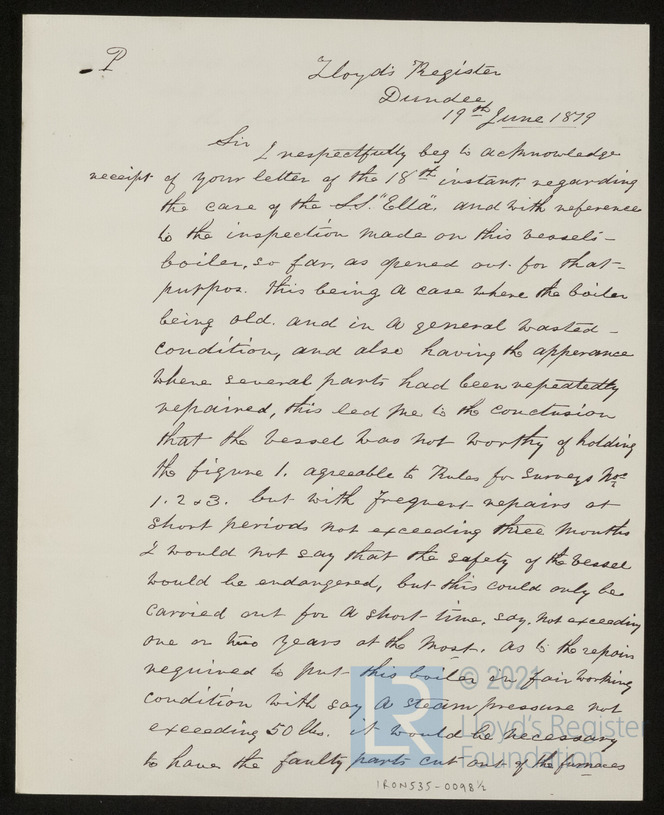 P
Lloyd's Register
Dundee
19th June 1879
Sir
I respectfully beg to acknowledge
receipt of your letter of the 18th instant, regarding
the case of the S.S. "Ella", and with reference
to the inspection made on this vessels
boiler, so far, as opened out for that
purpos. this being a case where the boiler
being old. and in a general wasted
condition, and also having the apperance
where several parts had been repeatedly
repaired, this led me to the conclusion
that the vessel was not worthy of holding
the figure 1. agreeable to Rules for Surveys Nos
1. 2 & 3. but with frequent repairs at
short periods not exceeding three months
I would not say that the safety of the vessel
would be endangered, but this could only be
carried out for a short time, say, not exceeding
one or two years at the most. as to the repairs
required to put this boiler in fair working
condition with say a steam pressure not
exceeding 50 lbs. it would be necessary
to have the faulty parts cut out of the furnaces
LR
© 2021
Lloyd's Register
Foundation
IRON535-0098 1/2